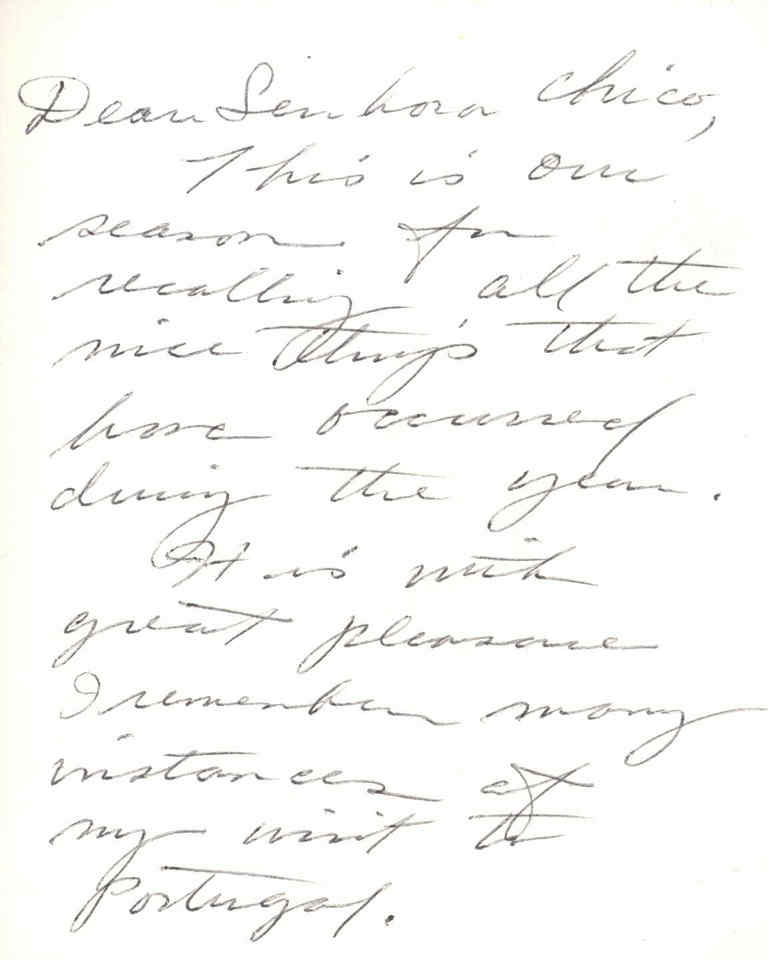 Dear Senhora Chico,
This is our
season for
recalling all the
nice things that
have occurred
during the year.
It is with
great pleasure
I remember many
instances of
my visit to
Portugal.